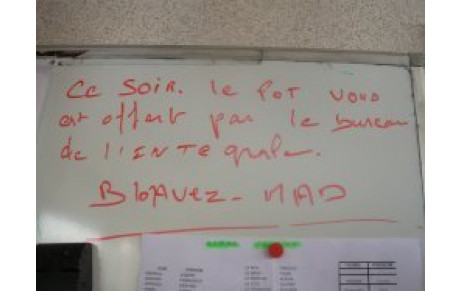 Ce SOIR. le POT VOUS
est offert par le bureau
de l'INTEgrale.
BloAvez - MAD